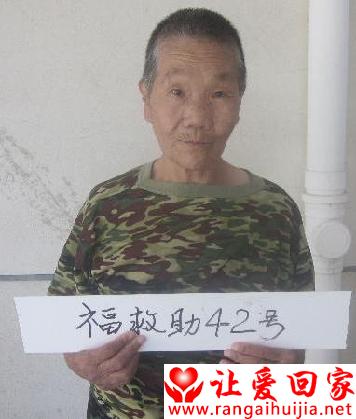 福救助42号
让爱回家
www.rangaihuijia.net